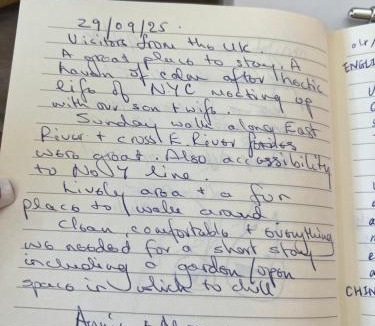 29/09/25.
Visitors from the UK
A great place to stay. A
haven of calm after hectic
life of NYC meeting up
with our son + wife.
Sunday walk along East
River + cross E River
were great. Also accessibility
to No 7 line.
Lively area + a fun
place to walk around
Clean, comfortable + everything
we needed for a short stay
including a garden/open
space in which to chill
ENGLI
CHIN